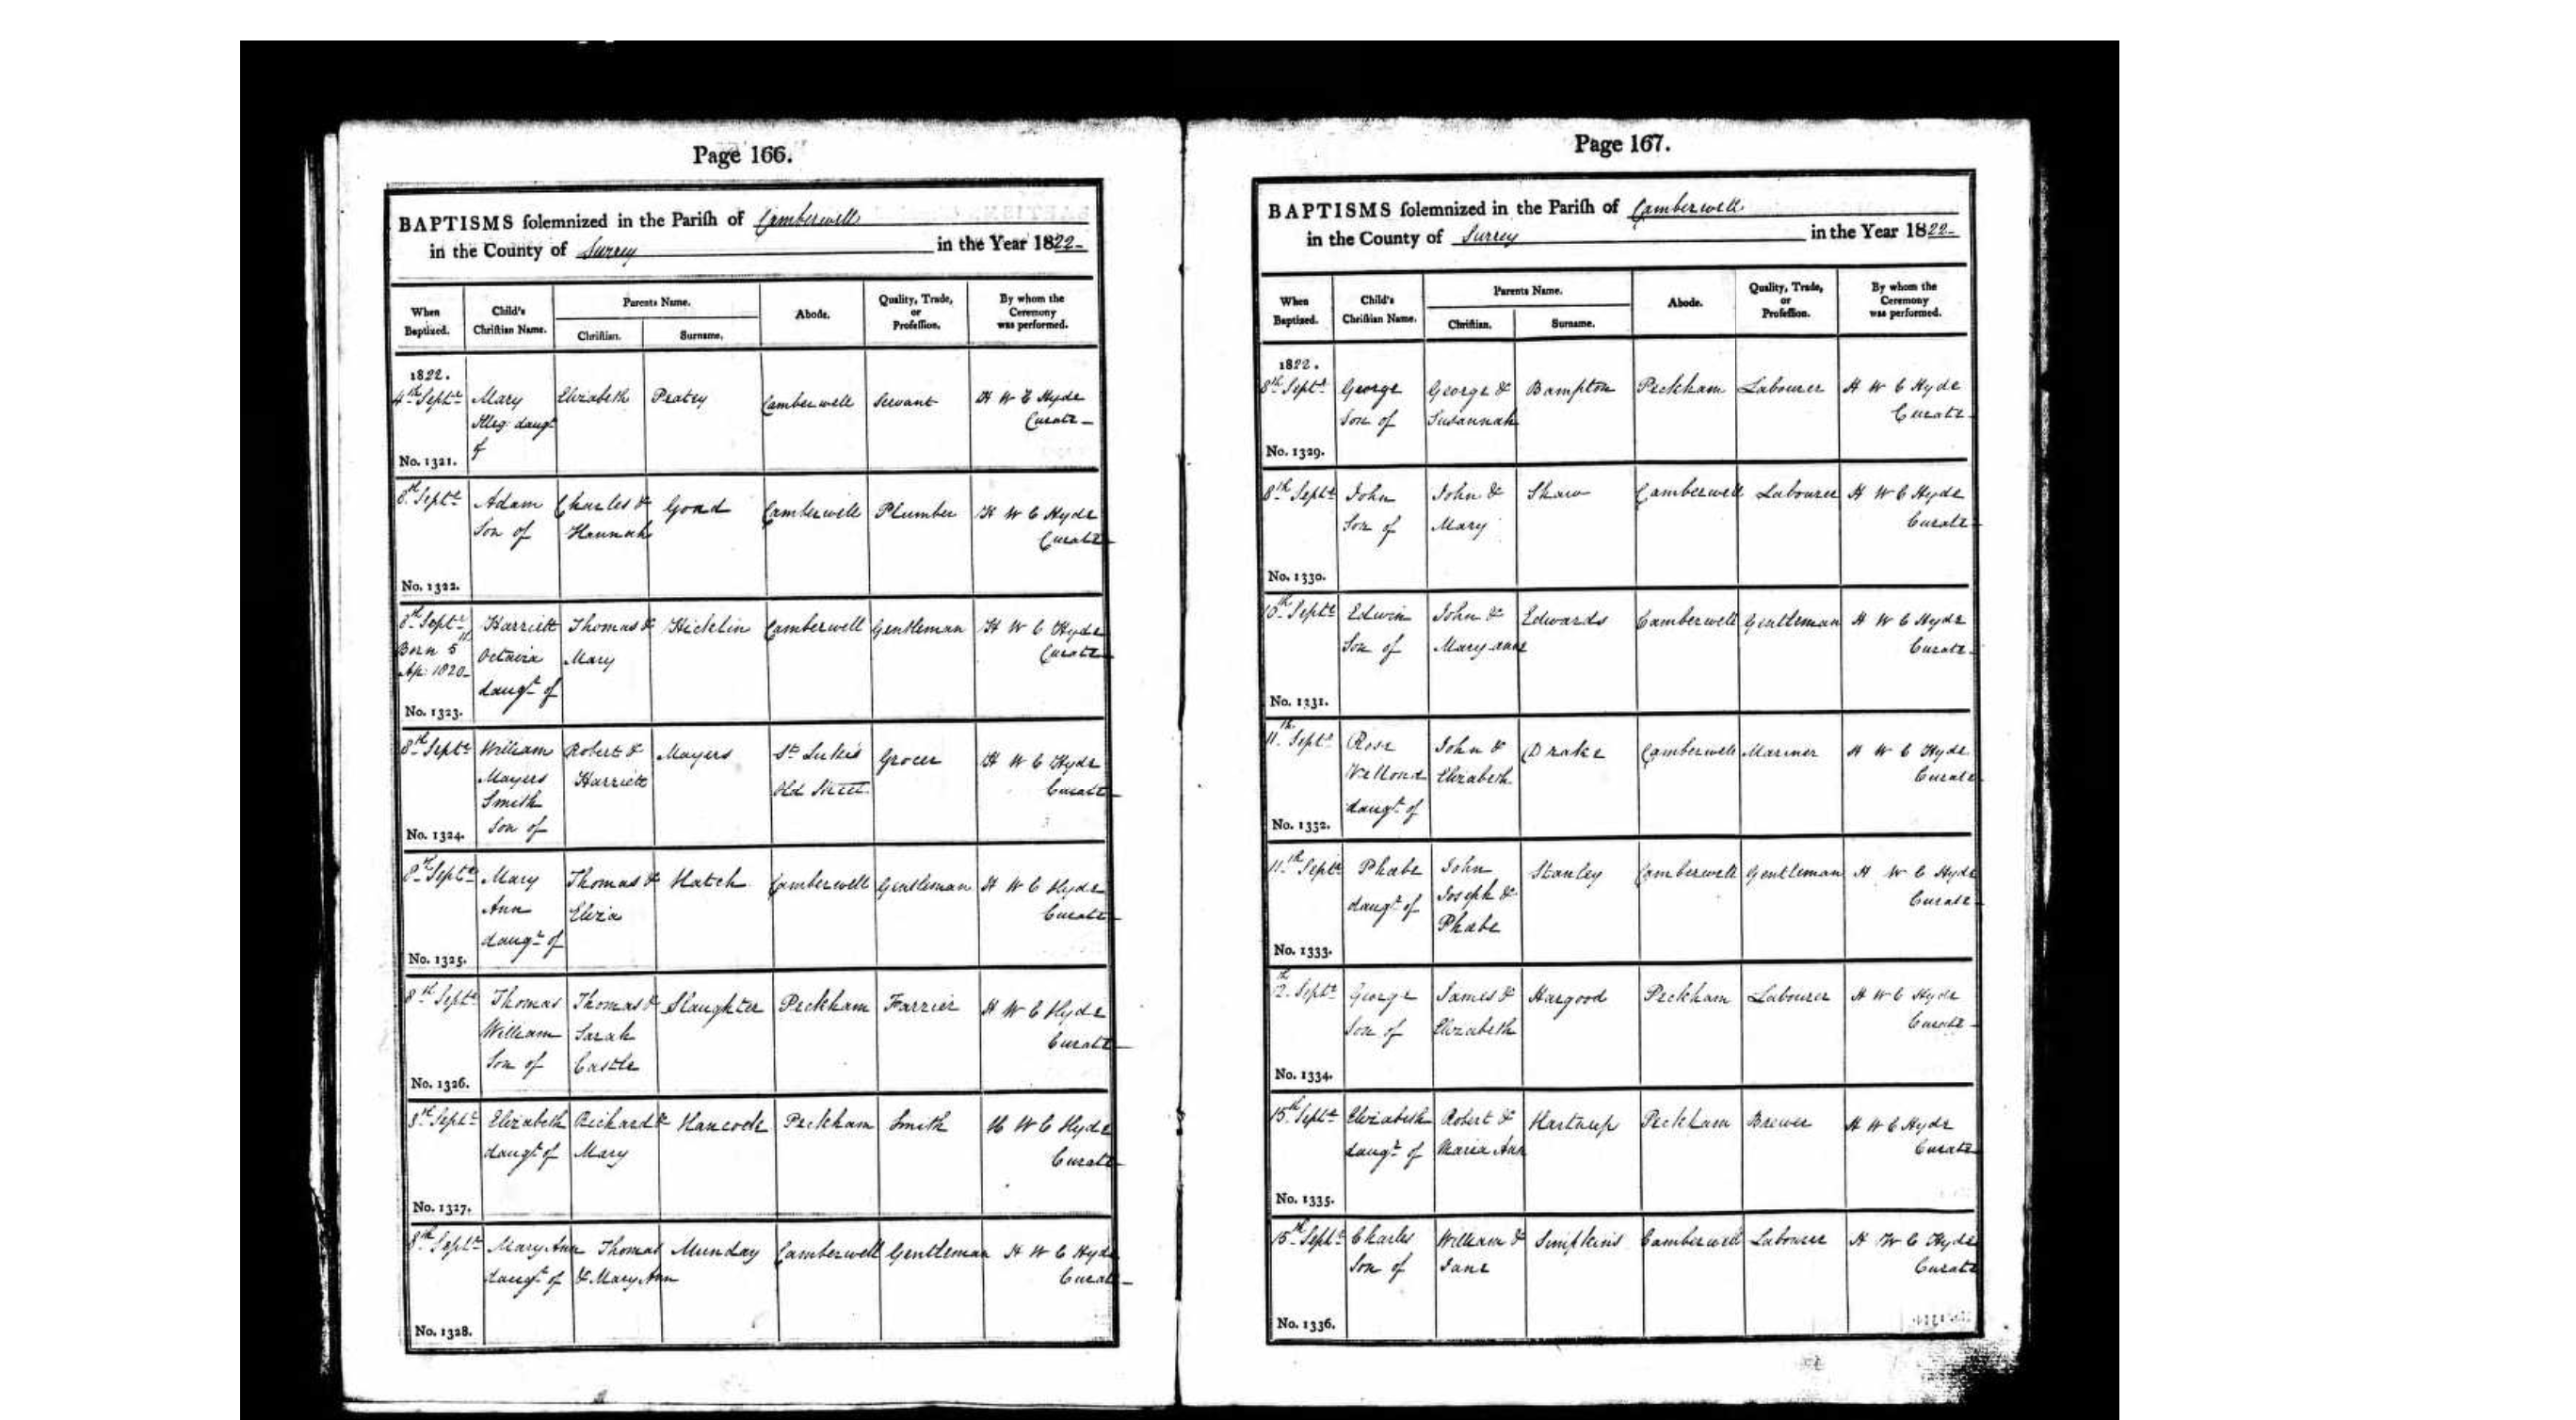 Page 166.
BAPTISMS solemnized in the Parish of Camberwell
in the County of Surrey in the Year 1822
When Baptized. Child's Christian Name. Parents Name. Christian. Surname. Abode. Quality, Trade, or Profession. By whom the Ceremony was performed.
1822.
4th Septr Mary Elizabeth Peatey Camberwell Servant H W C Hyde
Illeg. daugr Curate
of
No. 1321.
8th Septr Adam Charles & Goad Camberwell Plumber H W C Hyde
Son of Hannah Curate
No. 1322.
8th Septr Harriett Thomas & Hicklin Camberwell Gentleman H W C Hyde
Born 5th Octavia Mary Curate
Ap: 1820 daugr of
No. 1323.
8th Septr William Robert & Mayers St Luke's Grocer H W C Hyde
Mayers Harriett Old Street Curate
Smith
No. 1324. Son of
8th Septr Mary Thomas & Hatch Camberwell Gentleman H W C Hyde
Ann Eliza Curate
daugr of
No. 1325.
8th Septr Thomas Thomas & Slaughter Peckham Farrier H W C Hyde
William Sarah Curate
Son of Castle
No. 1326.
8th Septr Elizabeth Richard & Hancock Peckham Smith H W C Hyde
daugr of Mary Curate
No. 1327.
8th Septr Mary Ann Thomas Munday Camberwell Gentleman H W C Hyde
daugr of & Mary Ann Curate
No. 1328.
Page 167.
BAPTISMS solemnized in the Parish of Camberwell
in the County of Surrey in the Year 1822
When Baptized. Child's Christian Name. Parents Name. Christian. Surname. Abode. Quality, Trade, or Profession. By whom the Ceremony was performed.
1822.
8th Septr George George & Bampton Peckham Labourer H W C Hyde
Son of Susannah Curate
No. 1329.
8th Septr John John & Shaw Camberwell Labourer H W C Hyde
Son of Mary Curate
No. 1330.
10th Septr Edwin John & Edwards Camberwell Gentleman H W C Hyde
Son of Mary anne Curate
No. 1331.
11th Septr Rose John & Drake Camberwell Mariner H W C Hyde
Wellond Elizabeth Curate
daugr of
No. 1332.
11th Septr Phœbe John Stanley Camberwell Gentleman H W C Hyde
daugr of Joseph & Curate
Phœbe
No. 1333.
12th Septr George James & Hargood Peckham Labourer H W C Hyde
Son of Elizabeth Curate
No. 1334.
15th Septr Elizabeth Robert & Hartrup Peckham Brewer H W C Hyde
daugr of Maria Ann Curate
No. 1335.
15th Septr Charles William & Simpkins Camberwell Labourer H W C Hyde
Son of Jane Curate
No. 1336.